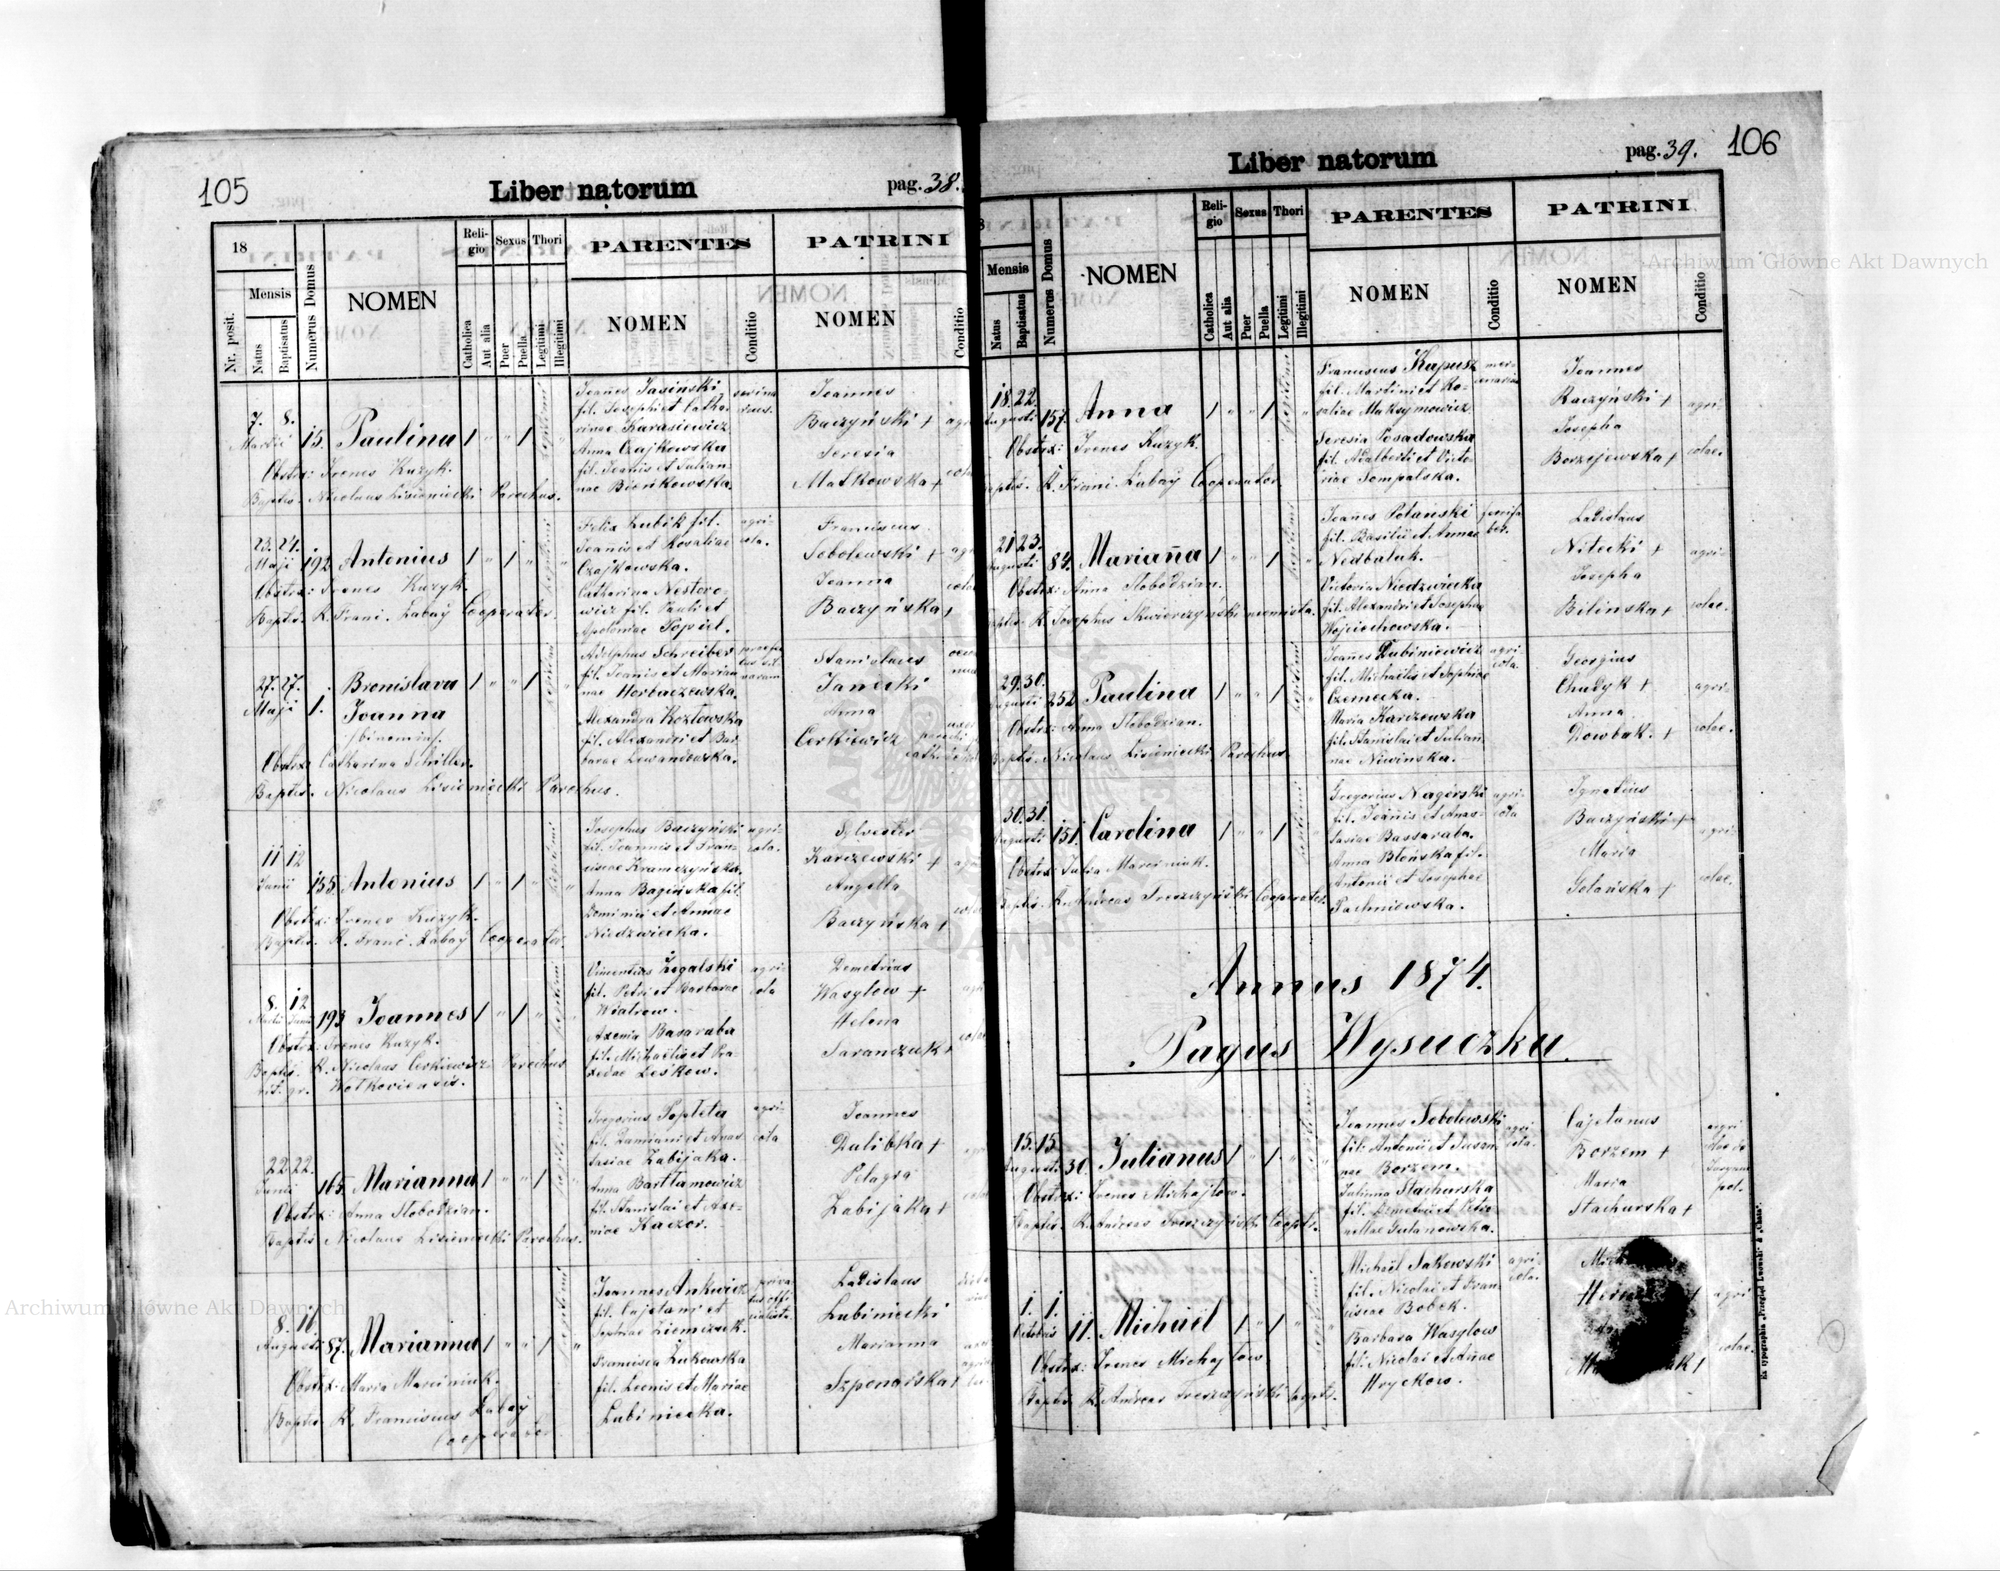 105
Liber natorum
pag. 38.
18
Mensis
Nr. posit.
Natus
Baptisatus
Numerus Domus
NOMEN
Religio
Catholica
Aut alia
Sexus
Puer
Puella
Thori
Legitimi
Illegitimi
PARENTES
NOMEN
Conditio
PATRINI
NOMEN
Conditio
7. 8.
Martii 15. Paulina 1 " " 1
Obstx: Irenes Kuzyk.
Baptis. Nicolaus Lisieniecki Parochus.
Joañes Jasinski
fil. Josephi et Catha-
rinae Karasiewicz
Anna Czajkowska
fil. Joanis et Julian-
nae Bieńkowska.
Joannes
Baczyński +
Teresia
Małkowska +
23. 24.
Maji 192 Antonius 1 " 1 "
Obstx: Irenes Kuzyk.
Baptis. R. Franc. Łabay Cooperator.
Felix Łubik fil.
Joanis et Rosaliae
Czajkowska.
Catharina Nestoro-
wicz fil. Pauli et
Apoloniae Popiel.
agri-
cola.
Franciscus
Sobolewski +
Joanna
Baczyńska +
27. 27.
Maji 1. Bronislava 1 " " 1
Joanna
/binomin/.
Obstx: Catharina Schiller.
Baptis. Nicolaus Lisieniecki Parochus.
Adolphus Schreiber
fil. Joanis et Marian-
nae Horbaczewska.
Alexandra Kozłowska
fil. Alexandri et Bar-
barae Lewandowska.
Stanislaus
Janecki
Anna
Cerkiewicz
11 12
Junii 155. Antonius 1 " 1 "
Obstx: Irenes Kuzyk.
Baptis. R. Franc. Łabay Cooperator.
Josephus Baczyński
fil. Joannis et Fran-
ciscae Kramczyńska.
Anna Bagińska fil.
Dominici et Annae
Niedzwiecka.
agri-
cola.
Sylvester
Karczewski +
Angella
Baczyńska +
8. 12
Martii Junii 193 Joannes 1 " 1 "
Obstx: Irenes Kuzyk.
Baptis. R. Nicolaus Cerkiewicz Parochus
rit. gr. Wołkoviensis.
Vincentius Żegalski
fil. Petri et Barbarae
Wiatrow.
Axenia Basaraba
fil. Michaelis et Pra-
xedae Leskow.
agri-
cola
Demetrius
Wasylow +
Helena
Taranczuk +
22. 22.
Junii 165. Marianna 1 " " 1
Obstx: Anna Słobodzian.
Baptis. Nicolaus Lisieniecki Parochus.
Gregorius Popteta
fil. Damiani et Anas-
tasiae Zabijaka.
Anna Bartłamowicz
fil. Stanislai et Axe-
niae Kaczor.
agri-
cola
Joannes
Dalibka +
Pelagia
Zabijaka +
8. 16.
Augusti 87. Marianna 1 " " 1
Obstx: Maria Marciniuk.
Baptis. R. Franciscus Łabay
Cooperator
Joannes Ankwicz
fil. Cajetani et
Sophiae Ziemczuk.
Francisca Żukowska
fil. Leonis et Mariae
Lubiniecka.
Ladislaus
Lubiniecki
Marianna
Szpenarska
Liber natorum
pag. 39.
106
Mensis
Natus
Baptisatus
Numerus Domus
NOMEN
Religio
Catholica
Aut alia
Sexus
Puer
Puella
Thori
Legitimi
Illegitimi
PARENTES
NOMEN
Conditio
PATRINI
NOMEN
Conditio
18. 22.
Augusti 157. Anna 1 " " 1
Obstx: Irenes Kuzyk.
Baptis. R. Franc. Łabay Cooperator.
Franciscus Kapusz
fil. Martini et Ro-
saliae Maksymowicz
Teresia Posadowska
fil. Adalberti et Victo-
riae Sompalska.
mer-
cenarius
Joannes
Raczyński +
Josepha
Borzejewska +
agri-
colae.
21 23.
Augusti 84. Mariañna 1 " " 1
Obstx: Anna Słobodzian.
Baptis. R. Josephus Skwierczyński neomista.
Joañes Polanski
fil. Basilii et Annae
Nedbaluk.
Victoria Niedzwiecka
fil. Alexandri et Josephae
Wojciechowska.
Ladislaus
Nitecki +
Josepha
Bilinska +
agri-
colae.
29. 30.
Augusti 252 Paulina 1 " " 1
Obstx: Anna Słobodzian.
Baptis. Nicolaus Lisieniecki Parochus.
Joañes Dubiniewicz
fil. Michaelis et Sophiae
Czernecka.
Maria Karczewska
fil. Stanislai et Julian-
nae Niwinska.
agri-
cola.
Georgius
Chudyk +
Anna
Dowbak. +
agri-
colae.
30. 31.
Augusti 151. Carolina 1 " " 1
Obstx: Julia Marciniuk.
Baptis. R. Andreas Treszczyński Cooperator.
Gregorius Nagorski
fil. Joañis et Anas-
tasiae Bassaraba.
Anna Błońska fil.
Antonii et Josephae
Pachniewska.
agri-
cola
Ignatius
Baczyński +
Maria
Golańska +
agri-
colae.
Annus 1874.
Pagus Wysuczka.
15. 15.
Augusti 30. Julianus 1 " 1 "
Obstx: Irenes Michajłow.
Baptis. R. Andreas Treszczyński Coopt.
Joannes Sobolewski
fil. Antonii et Susan-
nae Borzem.
Julianna Stachurska
fil. Demetrii et Petro-
nellae Gulanowska.
agri-
cola.
Cajetanus
Borzem +
Maria
Stachurska +
1. 1.
Octobris 11. Michaël 1 " 1 "
Obstx: Irenes Michajłow
Baptis. R. Andreas Treszczyński Coopt.
Michaël Sakowski
fil. Nicolai et Fran-
ciscae Bobek.
Barbara Wasylow
fil. Nicolai et Añae
Hryckow.
agri-
cola.
agri-
colae.
Archiwum Główne Akt Dawnych
Archiwum Główne Akt Dawnych